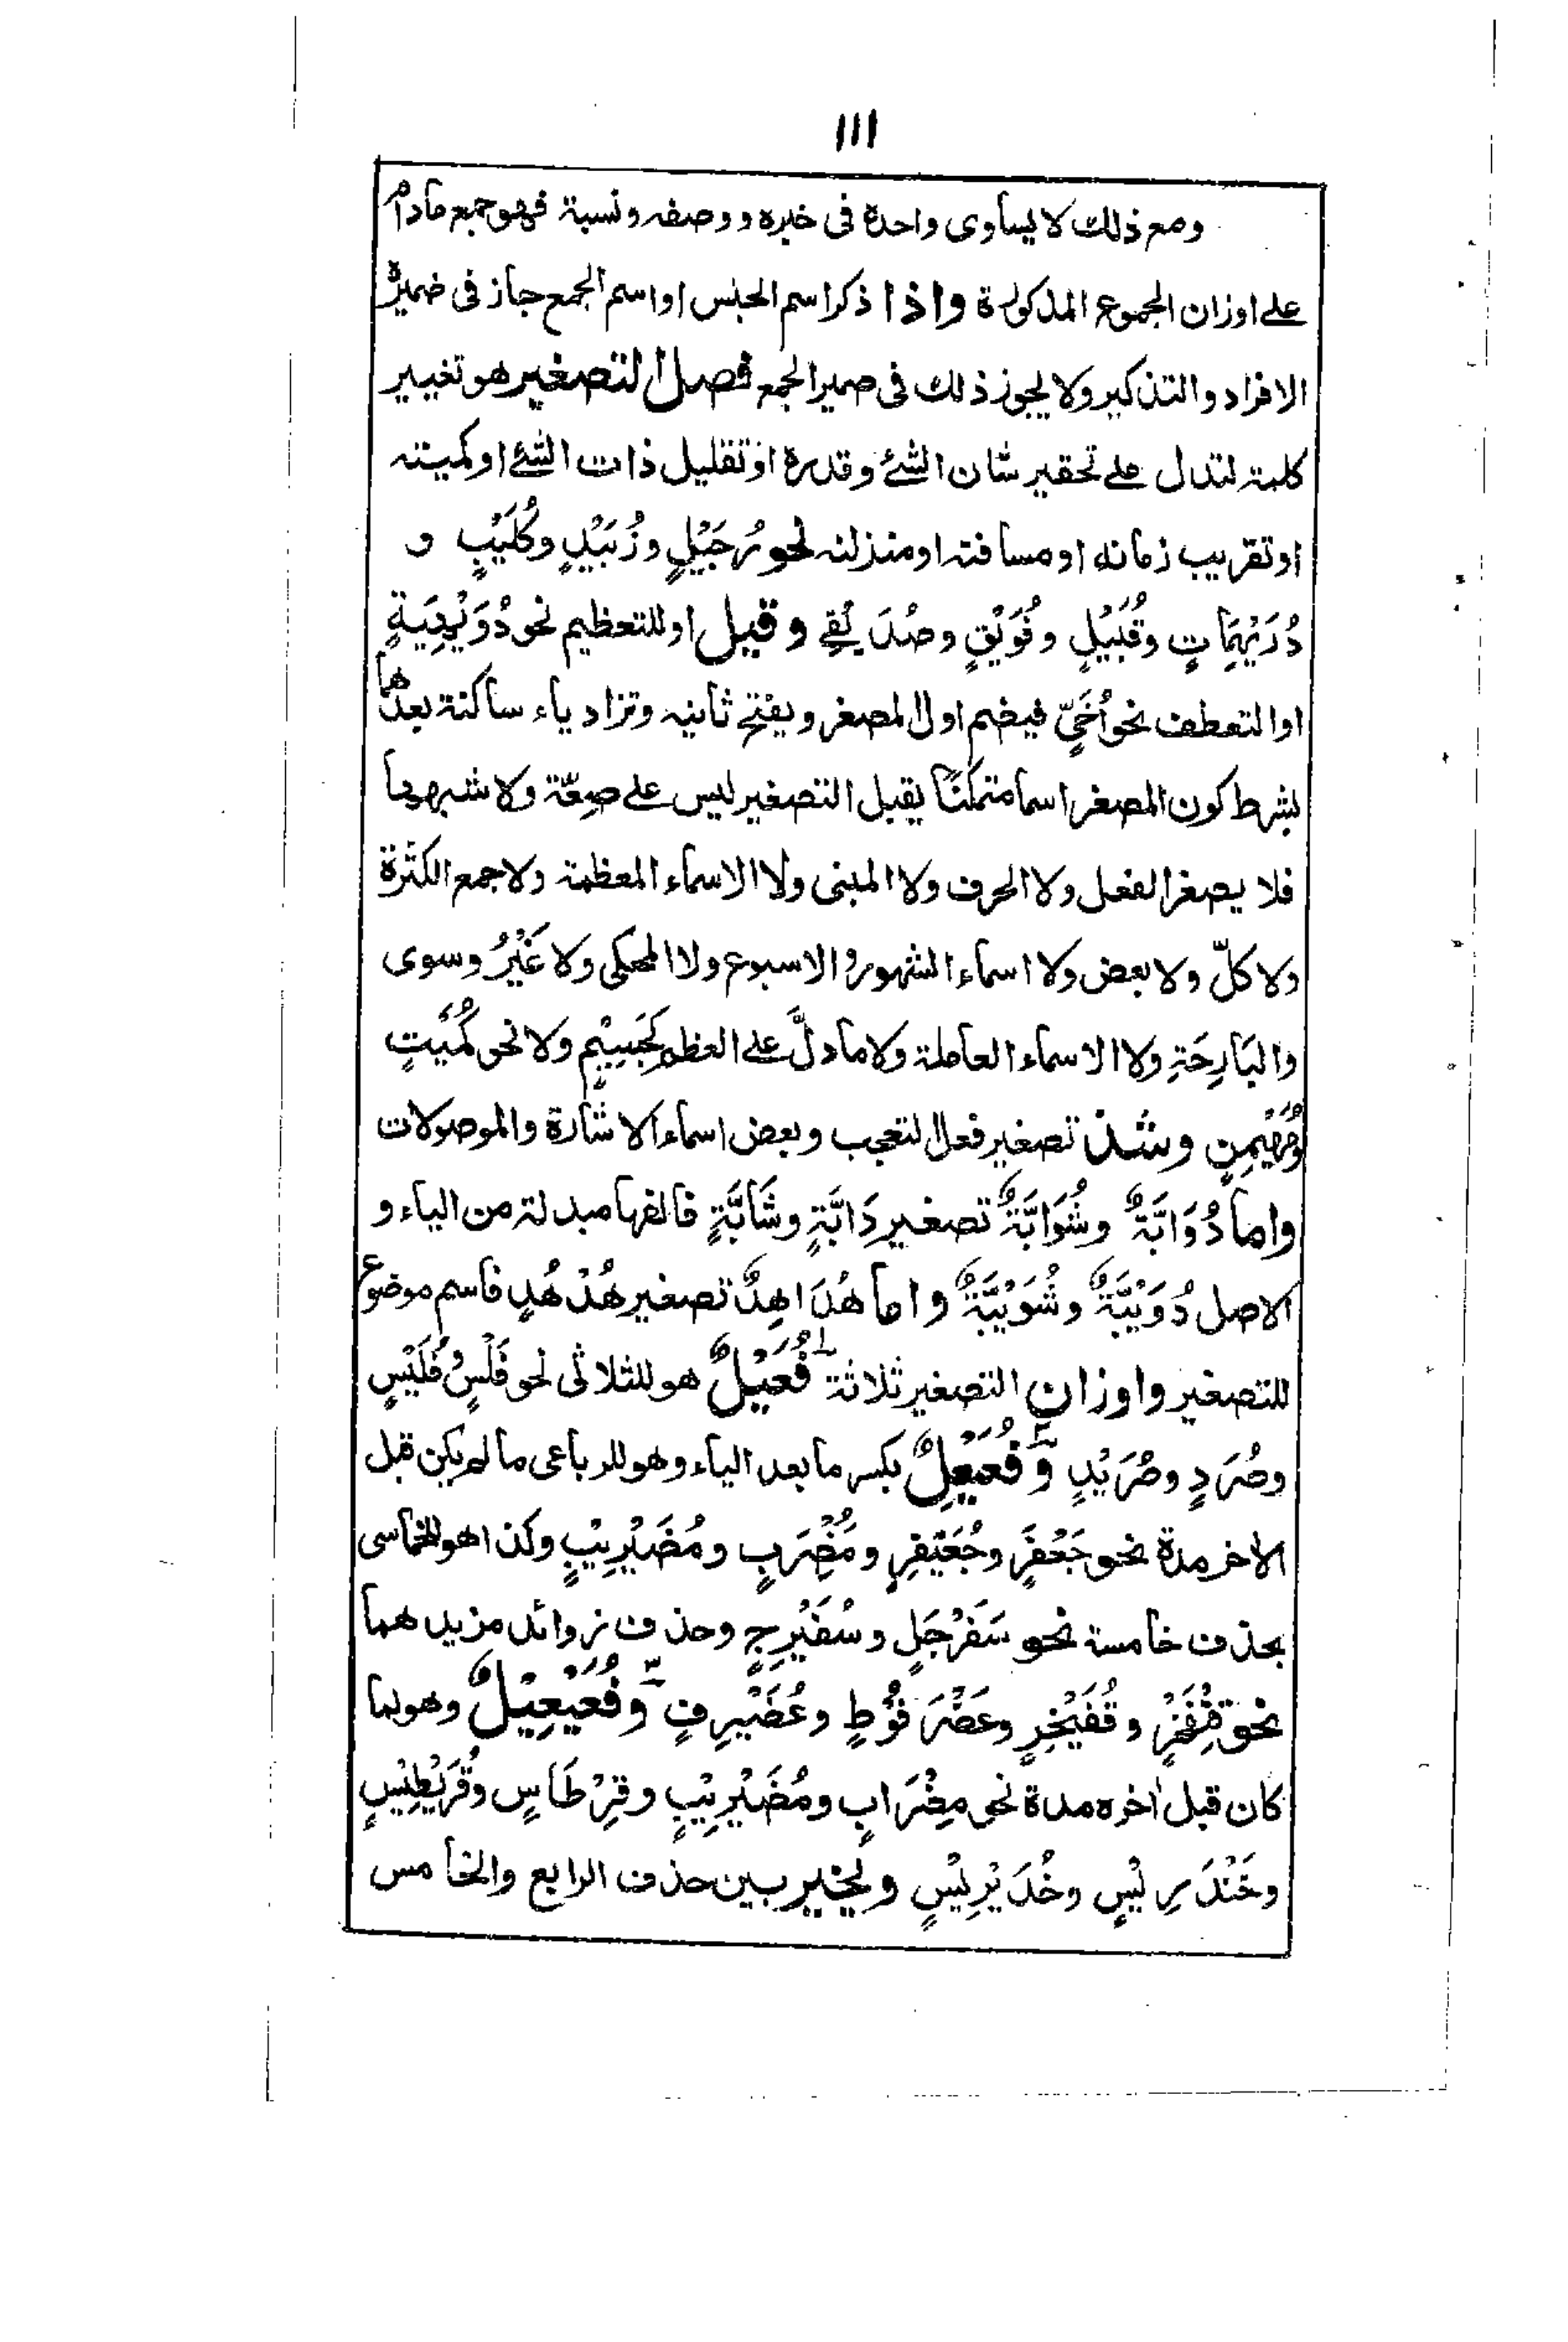 ١١١
ومع ذلك لا يساوى واحدة فى خبره ووصفه ونسبة فهو جمع مادام
على اوزان الجموع المذكورة واذا ذكر اسم الجنس او اسم الجمع جاز فى ضميره
الافراد والتذكير ولا يجوز ذلك فى ضمير الجمع فصل التصغير هو تغيير
كلمة لتدل على تحقير شان الشئ وقدره او تقليل ذات الشئ او كميته
او تقريب زمانه او مسافته او منزلته نحو رُجَيْلٍ وزُبَيْدٍ وكُلَيْبٍ و
دُرَيْهِمَاتٍ وقُبَيْلٍ وفُوَيْقٍ وصُدَيِّقِى وقيل او للتعظيم نحو دُوَيْهِيَةٍ
او التعطف نحو أُخَيٍّ فيضم اول المصغر ويفتح ثانيه وتزاد ياء ساكنة بعدهما
بشرط كون المصغر اسما متمكنًا يقبل التصغير ليس على صيغة ولا شبهها
فلا يصغر الفعل ولا الحرف ولا المبنى ولا الاسماء المعظمة ولا جمع الكثرة
ولا كلّ ولا بعض ولا اسماء الشهور والاسبوع ولا المحكى ولا غَيْرُ وسوى
والبَارِحَةِ ولا الاسماء العاملة ولا ما دلَّ على العظم كجَسِيْمٍ ولا نحو كُمَيْتٍ
ومُهَيْمِنٍ وشذ تصغير فعل التعجب وبعض اسماء الاشارة والموصولات
واما دُوَابَّةٌ وشُوَابَّةٌ تصغير دَابَّةٍ وشَابَّةٍ فالفها مبدلة من الياء و
الاصل دُوَيْبَّةٌ وشُوَيْبَّةٌ واما هُدَاهِدٌ تصغير هُدْهُدٍ فاسم موضوع
للتصغير واوزان التصغير ثلاثة فُعَيْلٌ هو للثلاثى نحو فَلْسٍ وفُلَيْسٍ
وصُرَدٍ وصُرَيْدٍ وفُعَيْعِلٌ بكسر ما بعد الياء وهو للرباعى ما لم يكن قبل
الاخر مدة نحو جَعْفَرٍ وجُعَيْفِرٍ ومَضْرِبٍ ومُضَيْرِيْبٍ وكذا هو للخماسى
بحذف خامسة نحو سَفَرْجَلٍ وسُفَيْرِجٍ وحذف زوائد مزيدهما
نحو قِنْفَخْرٍ وقُفَيْخِرٍ وعَضْرَفُوْطٍ وعُضَيْرِفٍ وفُعَيْعِيْلٌ وهو لما
كان قبل اٰخره مدة نحو مِضْرَابٍ ومُضَيْرِيْبٍ وقِرْطَاسٍ وقُرَيْطِيْسٍ
وخَنْدَرِيْسٍ وخُدَيْرِيْسٍ ويخير بين حذف الرابع والخامس